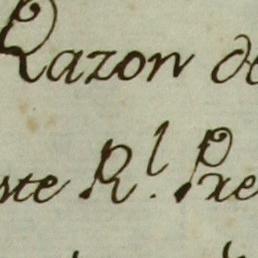 Razon de
ste R.l Pre